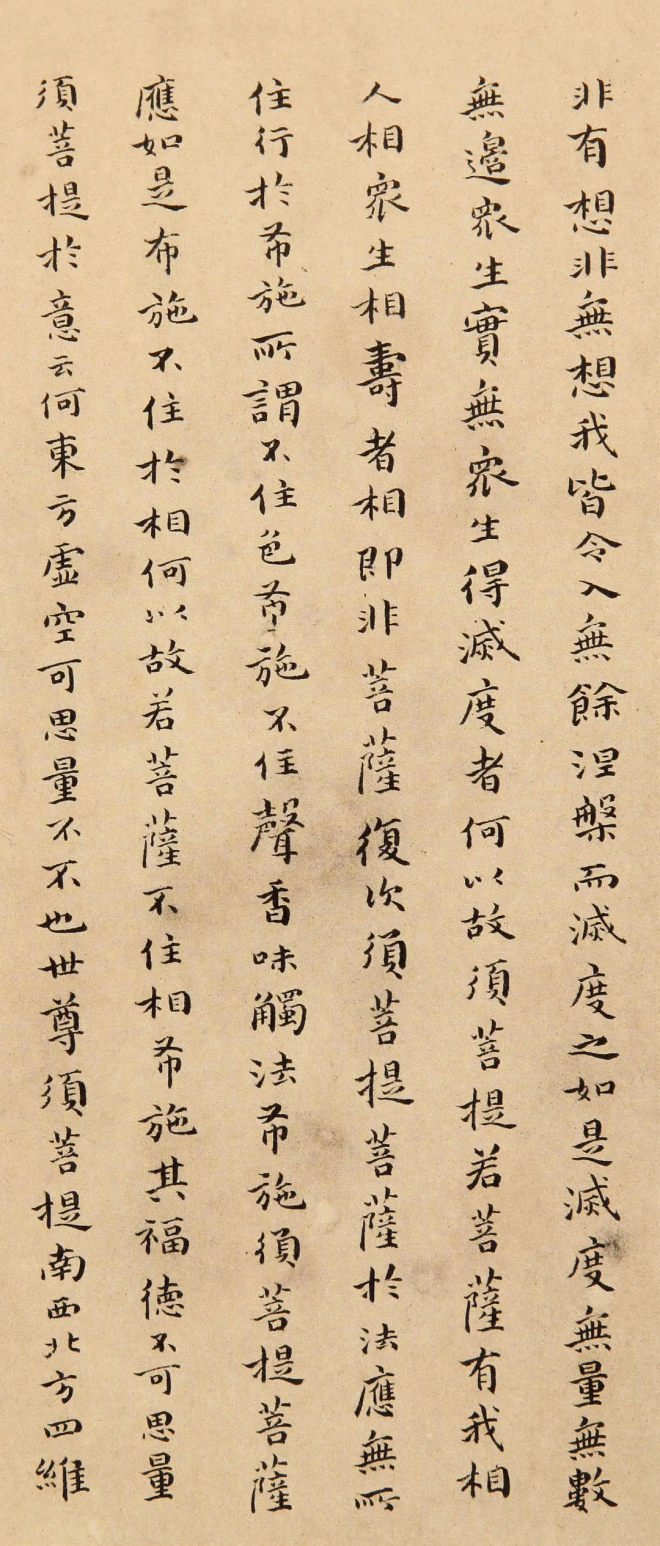 非有想非無想我皆令入無餘涅槃而滅度之如是滅度無量無數
無邊衆生實無衆生得滅度者何以故須菩提若菩薩有我相
人相衆生相壽者相即非菩薩復次須菩提菩薩於法應無所
住行於布施所謂不住色布施不住聲香味觸法布施須菩提菩薩
應如是布施不住於相何以故若菩薩不住相布施其福德不可思量
須菩提於意云何東方虛空可思量不不也世尊須菩提南西北方四維